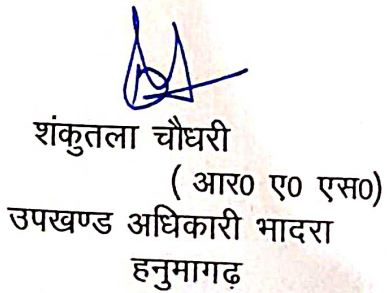 शंकुतला चौधरी
( आर0 ए0 एस0)
उपखण्ड अधिकारी भादरा
हनुमागढ़